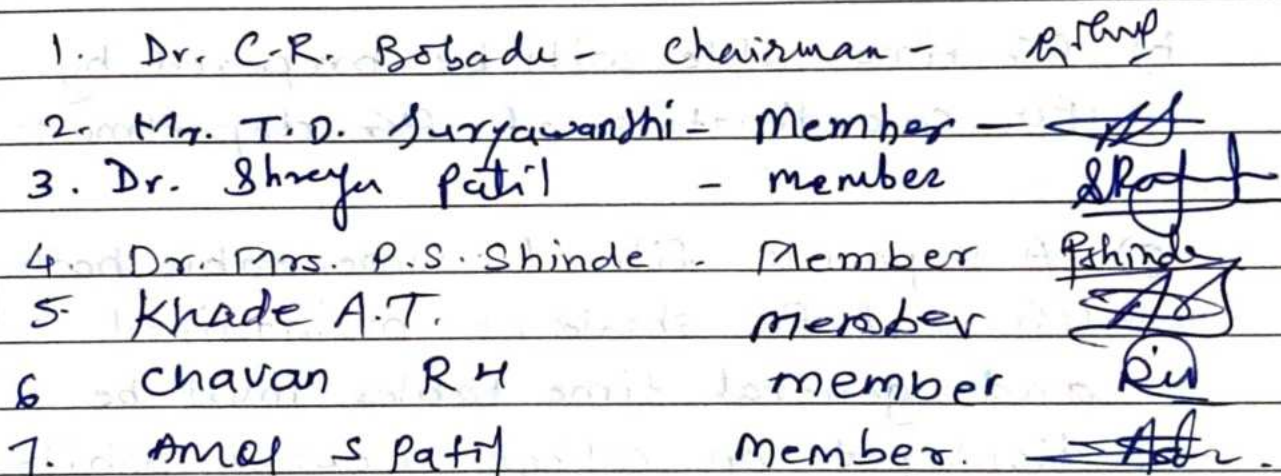 1. Dr. C.R. Bobade - Chairman -
2. Mr. T.D. Suryawanshi - Member -
3. Dr. Shreya Patil - member
4. Dr. Mrs. P.S. Shinde - Member PShinde
5. Khade A.T. member
6 Chavan R H member
7. Amol S Patil Member.